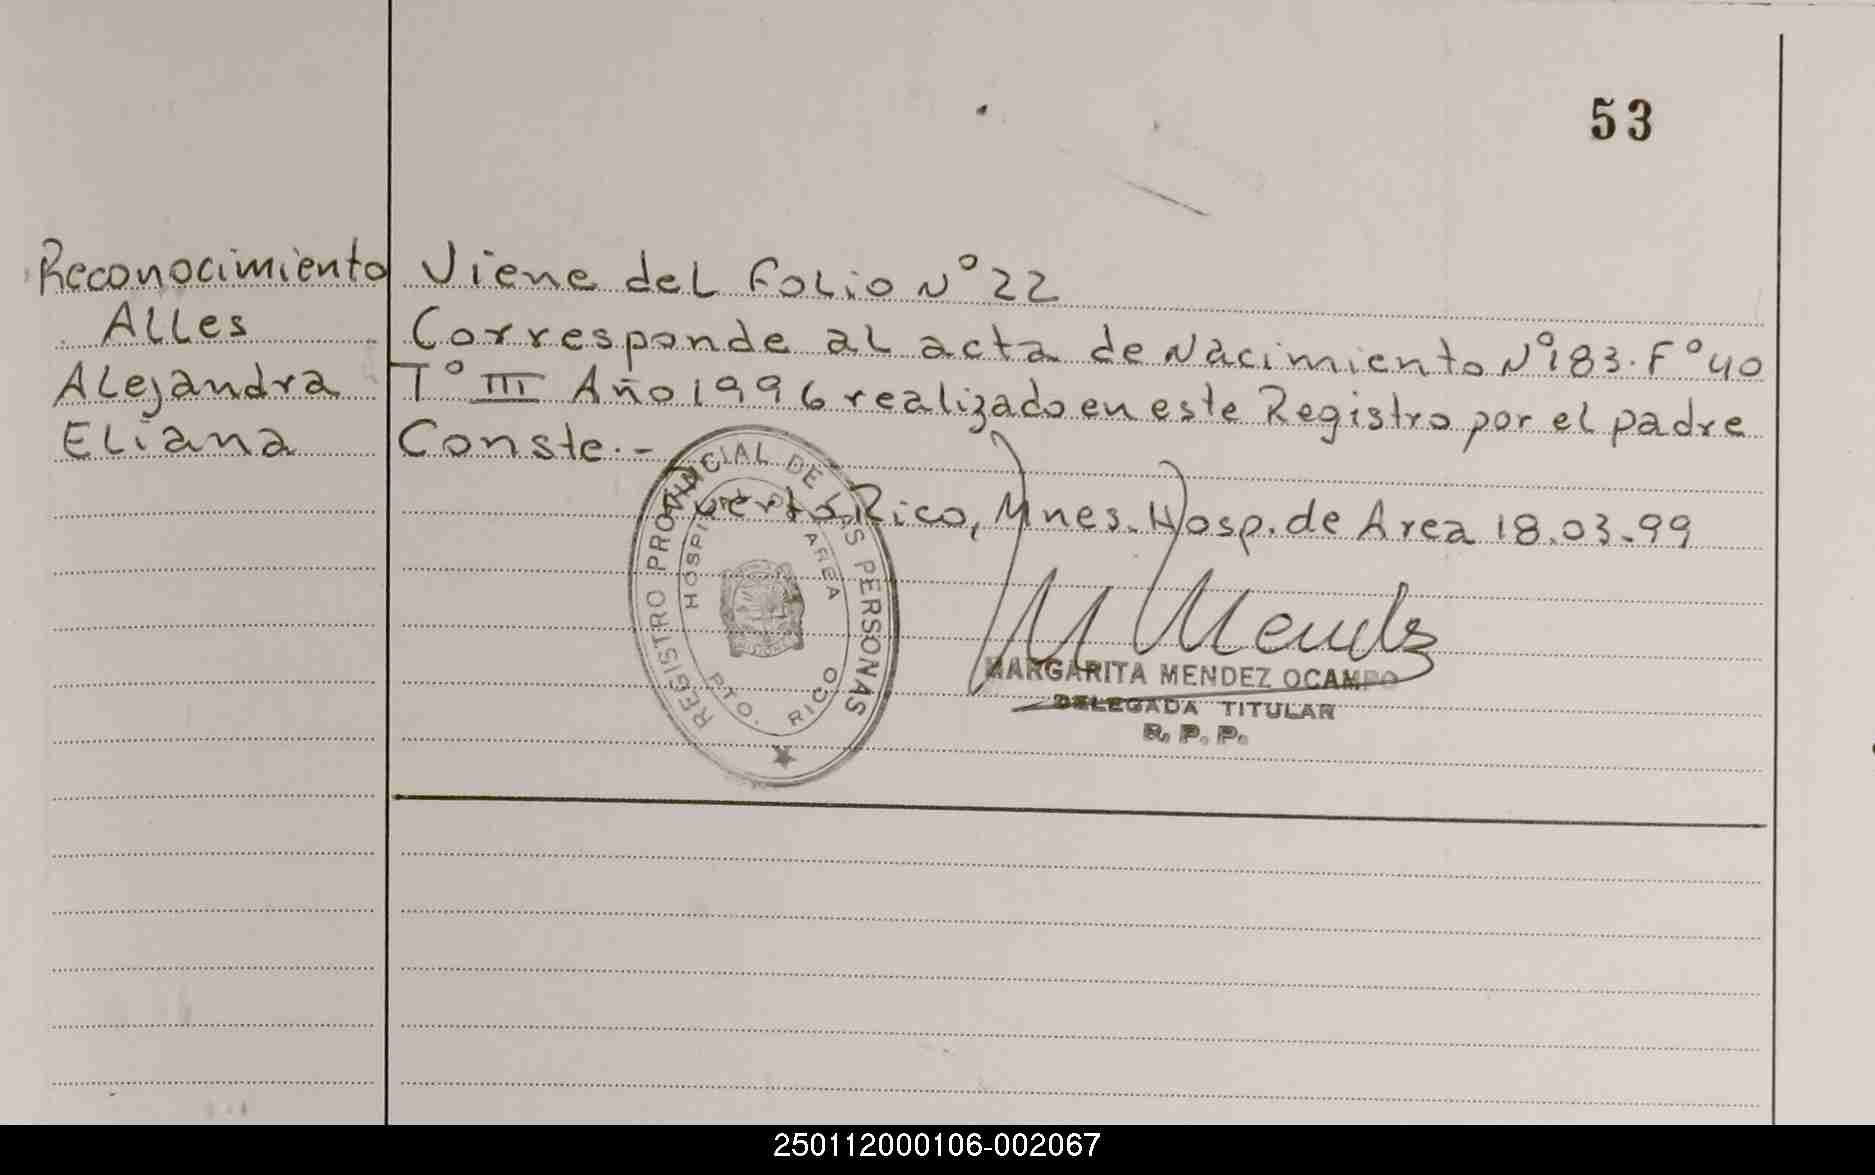 53
Reconocimiento
Alles
Alejandra
Eliana
Viene del Folio N° 22
Corresponde al acta de Nacimiento N° 183. F° 40
T° III Año 1996 realizado en este Registro por el padre
Conste.-
Puerto Rico, Mnes. Hosp. de Area 18.03.99
REGISTRO PROVINCIAL DE LAS PERSONAS
HOSPITAL DE AREA
PTO. RICO
M Mendez
MARGARITA MENDEZ OCAMPO
DELEGADA TITULAR
R. P. P.
250112000106-002067